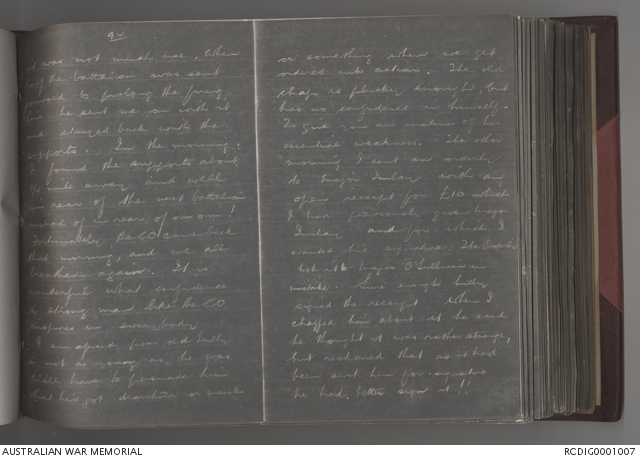 92
it was not much use. When
half the battalion was sent
forward to prolong the firing
line he sent me on with it
and stayed back with the
supports. In the morning
I found the supports about
mile away and well
in rear of the next battalion
in rear of our own!
Fortunately the CO came back
that morning, and we all
breathed again. It is
wonderful what confidence
a strong man like the CO
inspires in everybody
I am afraid poor old
is not a strong man, he was
We'll have to persuade him
that he's got diarrhoea or measles
or something when we get
ordered into action. The old
chap is plucky enough, but
has no confidence in himself.
To give you an instance of his
essential weakness. The other
morning I sent an orderly
to Major with an
open receipt for £10 which
I had previously given
and for which I
wanted his signature. The
took it to Major O'Sullivan in
mistake. Sure enough
signed the receipt. When I
chaffed him about it he said
he thought it was rather strange,
but reckoned that as it had
been sent him for signature
he had better sign it!!
AUSTRALIAN WAR MEMORIAL
RCDIG0001007